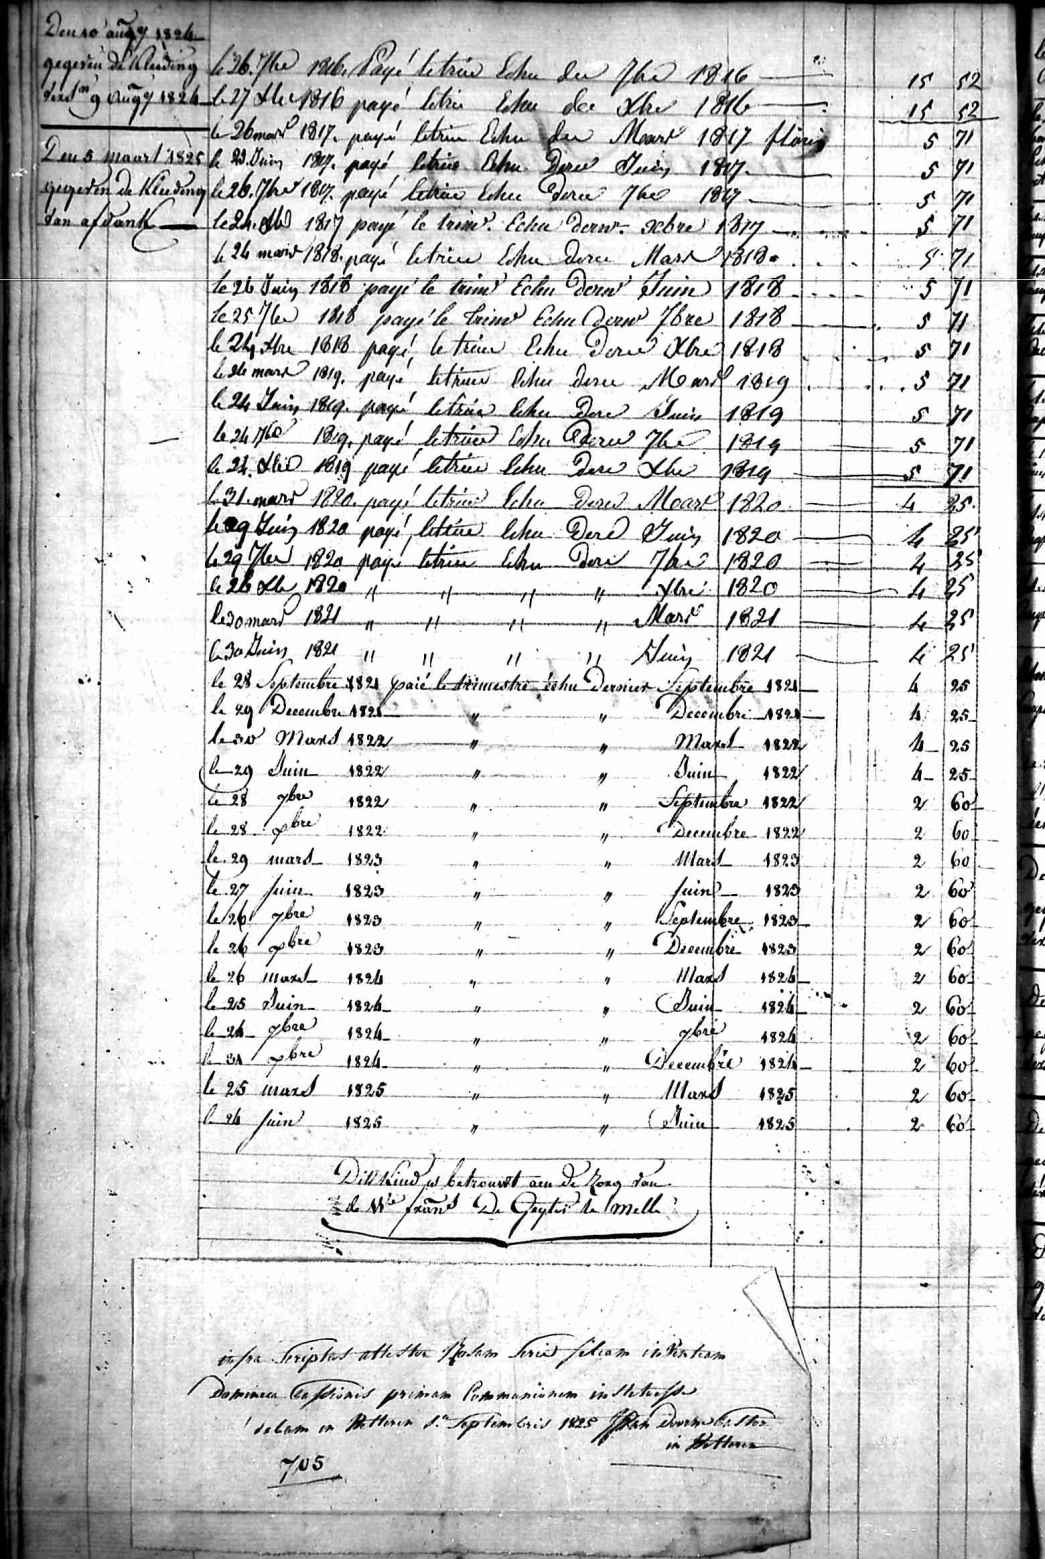 Den 10 augt 1824
gegeven de Kleeding
van 9 augt 1824
Den 5 maart 1825
gegeven de Kleeding
van afdank
le 26. 7bre 1816. Payé le trim Echu du 7bre 1816 15 52
le 27 Xbre 1816 payé le trim Echu du Xbre 1816 15 52
le 26 mars 1817. payé le trim Echu du Mars 1817 florin 5 71
le 23 Juin 1817. payé le trim Echu dernr Juin 1817. 5 71
le 26. 7bre 1817. payé le trim Echu dernr 7bre 1817 5 71
le 24. Xbre 1817 payé le trimr. Echu dernr. xebre 1817 5 71
le 24 mars 1818. payé le trim Echu dernr Mars 1818. 5 71
le 26 Juin 1818 payé le trimr Echu dernr Juin 1818 5 71
le 25 7bre 1818 payé le trimr Echu dernr 7bre 1818 5 71
le 24 Xbre 1818 payé le trim Echu dernr Xbre 1818 5 71
le 26 mars 1819. payé le trim Echu dernr Mars 1819 5 71
le 24 Juin 1819. payé le trim Echu dernr Juin 1819 5 71
le 24 7bre 1819. payé le trim Echu dernr 7bre 1819 5 71
le 24. Xbre 1819 payé le trim Echu dernr Xbre 1819 5 71
le 31 mars 1820. payé le trim Echu dernr Mars 1820 4 25
le 29 Juin 1820 payé le trim Echu dernr Juin 1820 4 25
le 29 7bre 1820 payé le trim Echu dernr 7bre 1820 4 25
le 28 Xbre 1820 " " " " Xbre 1820 4 25
le 30 mars 1821 " " " " Mars 1821 4 25
le 30 Juin 1821 " " " " Juin 1821 4 25
le 28 Septembre 1821 paié le trimestre échu Dernier Septembre 1821 4 25
le 29 Decembre 1821 " " Decembre 1821 4 25
le 30 Mars 1822 " " Mars 1822 4 25
le 29 Juin 1822 " " Juin 1822 4 25
le 28 7bre 1822 " " Septembre 1822 2 60
le 28 Xbre 1822 " " Decembre 1822 2 60
le 29 mars 1823 " " Mars 1823 2 60
le 27 juin 1823 " " juin 1823 2 60
le 26 7bre 1823 " " Septembre 1823 2 60
le 26 Xbre 1823 " " Decembre 1823 2 60
le 26 mars 1824 " " Mars 1824 2 60
le 25 Juin 1824 " " Juin 1824 2 60
le 24 7bre 1824 " " 7bre 1824 2 60
le 31 Xbre 1824 " " Decembre 1824 2 60
le 25 mars 1825 " " Mars 1825 2 60
le 24 juin 1825 " " Juin 1825 2 60
Dit Kind is betrouwt aen de Zorg van
de We frans De Geyter te Melle
infra Scriptus attestor Rosam filiam
Dominica Passionis primam Communionem instituisse
datam in Wetteren 5a Septembris 1825 Pastor
in Wetteren
705